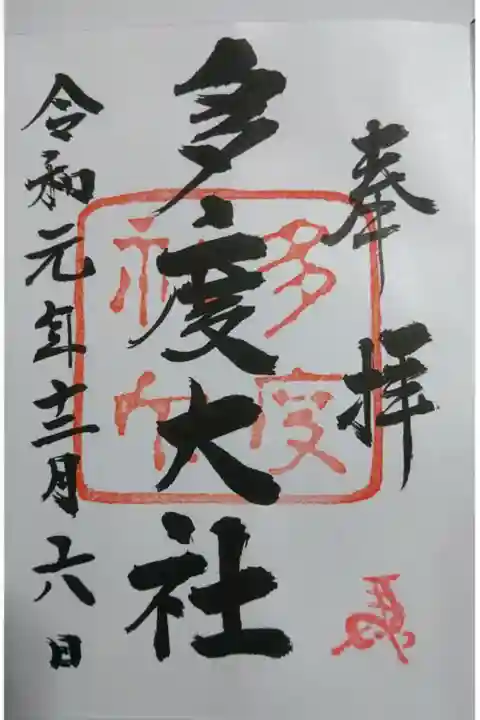 奉拝
多度大社
令和元年十二月六日
多度
馬